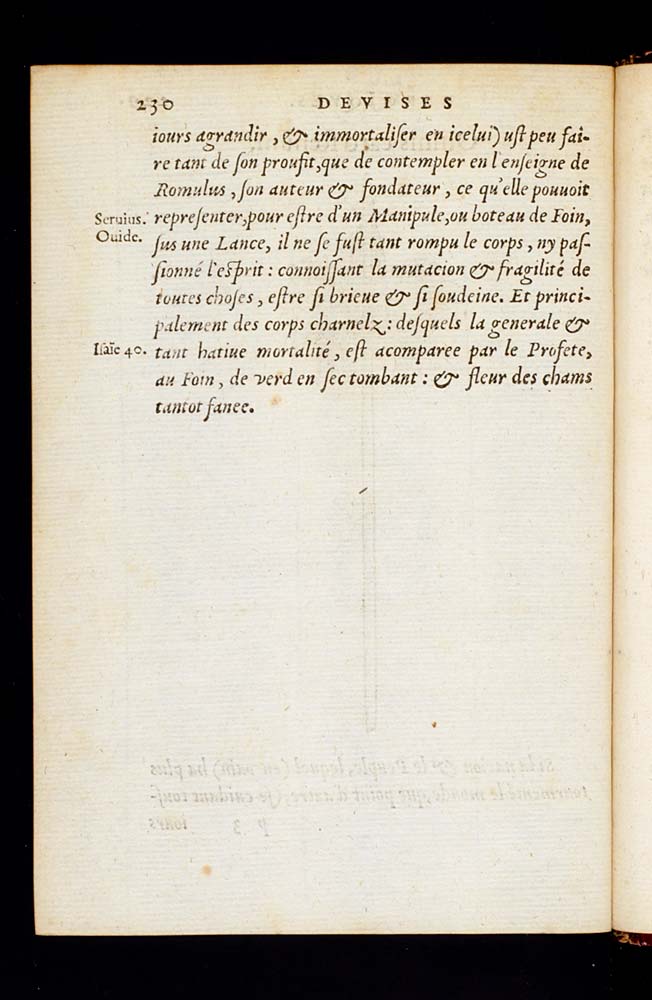 230 DEVISES
iours agrandir, & immortaliſer en icelui) uſt peu fai-
re tant de ſon proufit, que de contempler en l'enſeigne de
Romulus, ſon auteur & fondateur, ce qu'elle pouuoit
Seruius. repreſenter, pour eſtre d'un Manipule, ou boteau de Foin,
Ouide. ſus une Lance, il ne ſe fuſt tant rompu le corps, ny paſ-
ſionné l'eſprit: connoiſſant la mutacion & fragilité de
toutes choſes, eſtre ſi brieue & ſi ſoudeine. Et princi-
palement des corps charnelz: deſquels la generale &
Iſaïe 40. tant hatiue mortalité, eſt acomparee par le Profete,
au Foin, de verd en ſec tombant: & fleur des chams
tantot fanee.